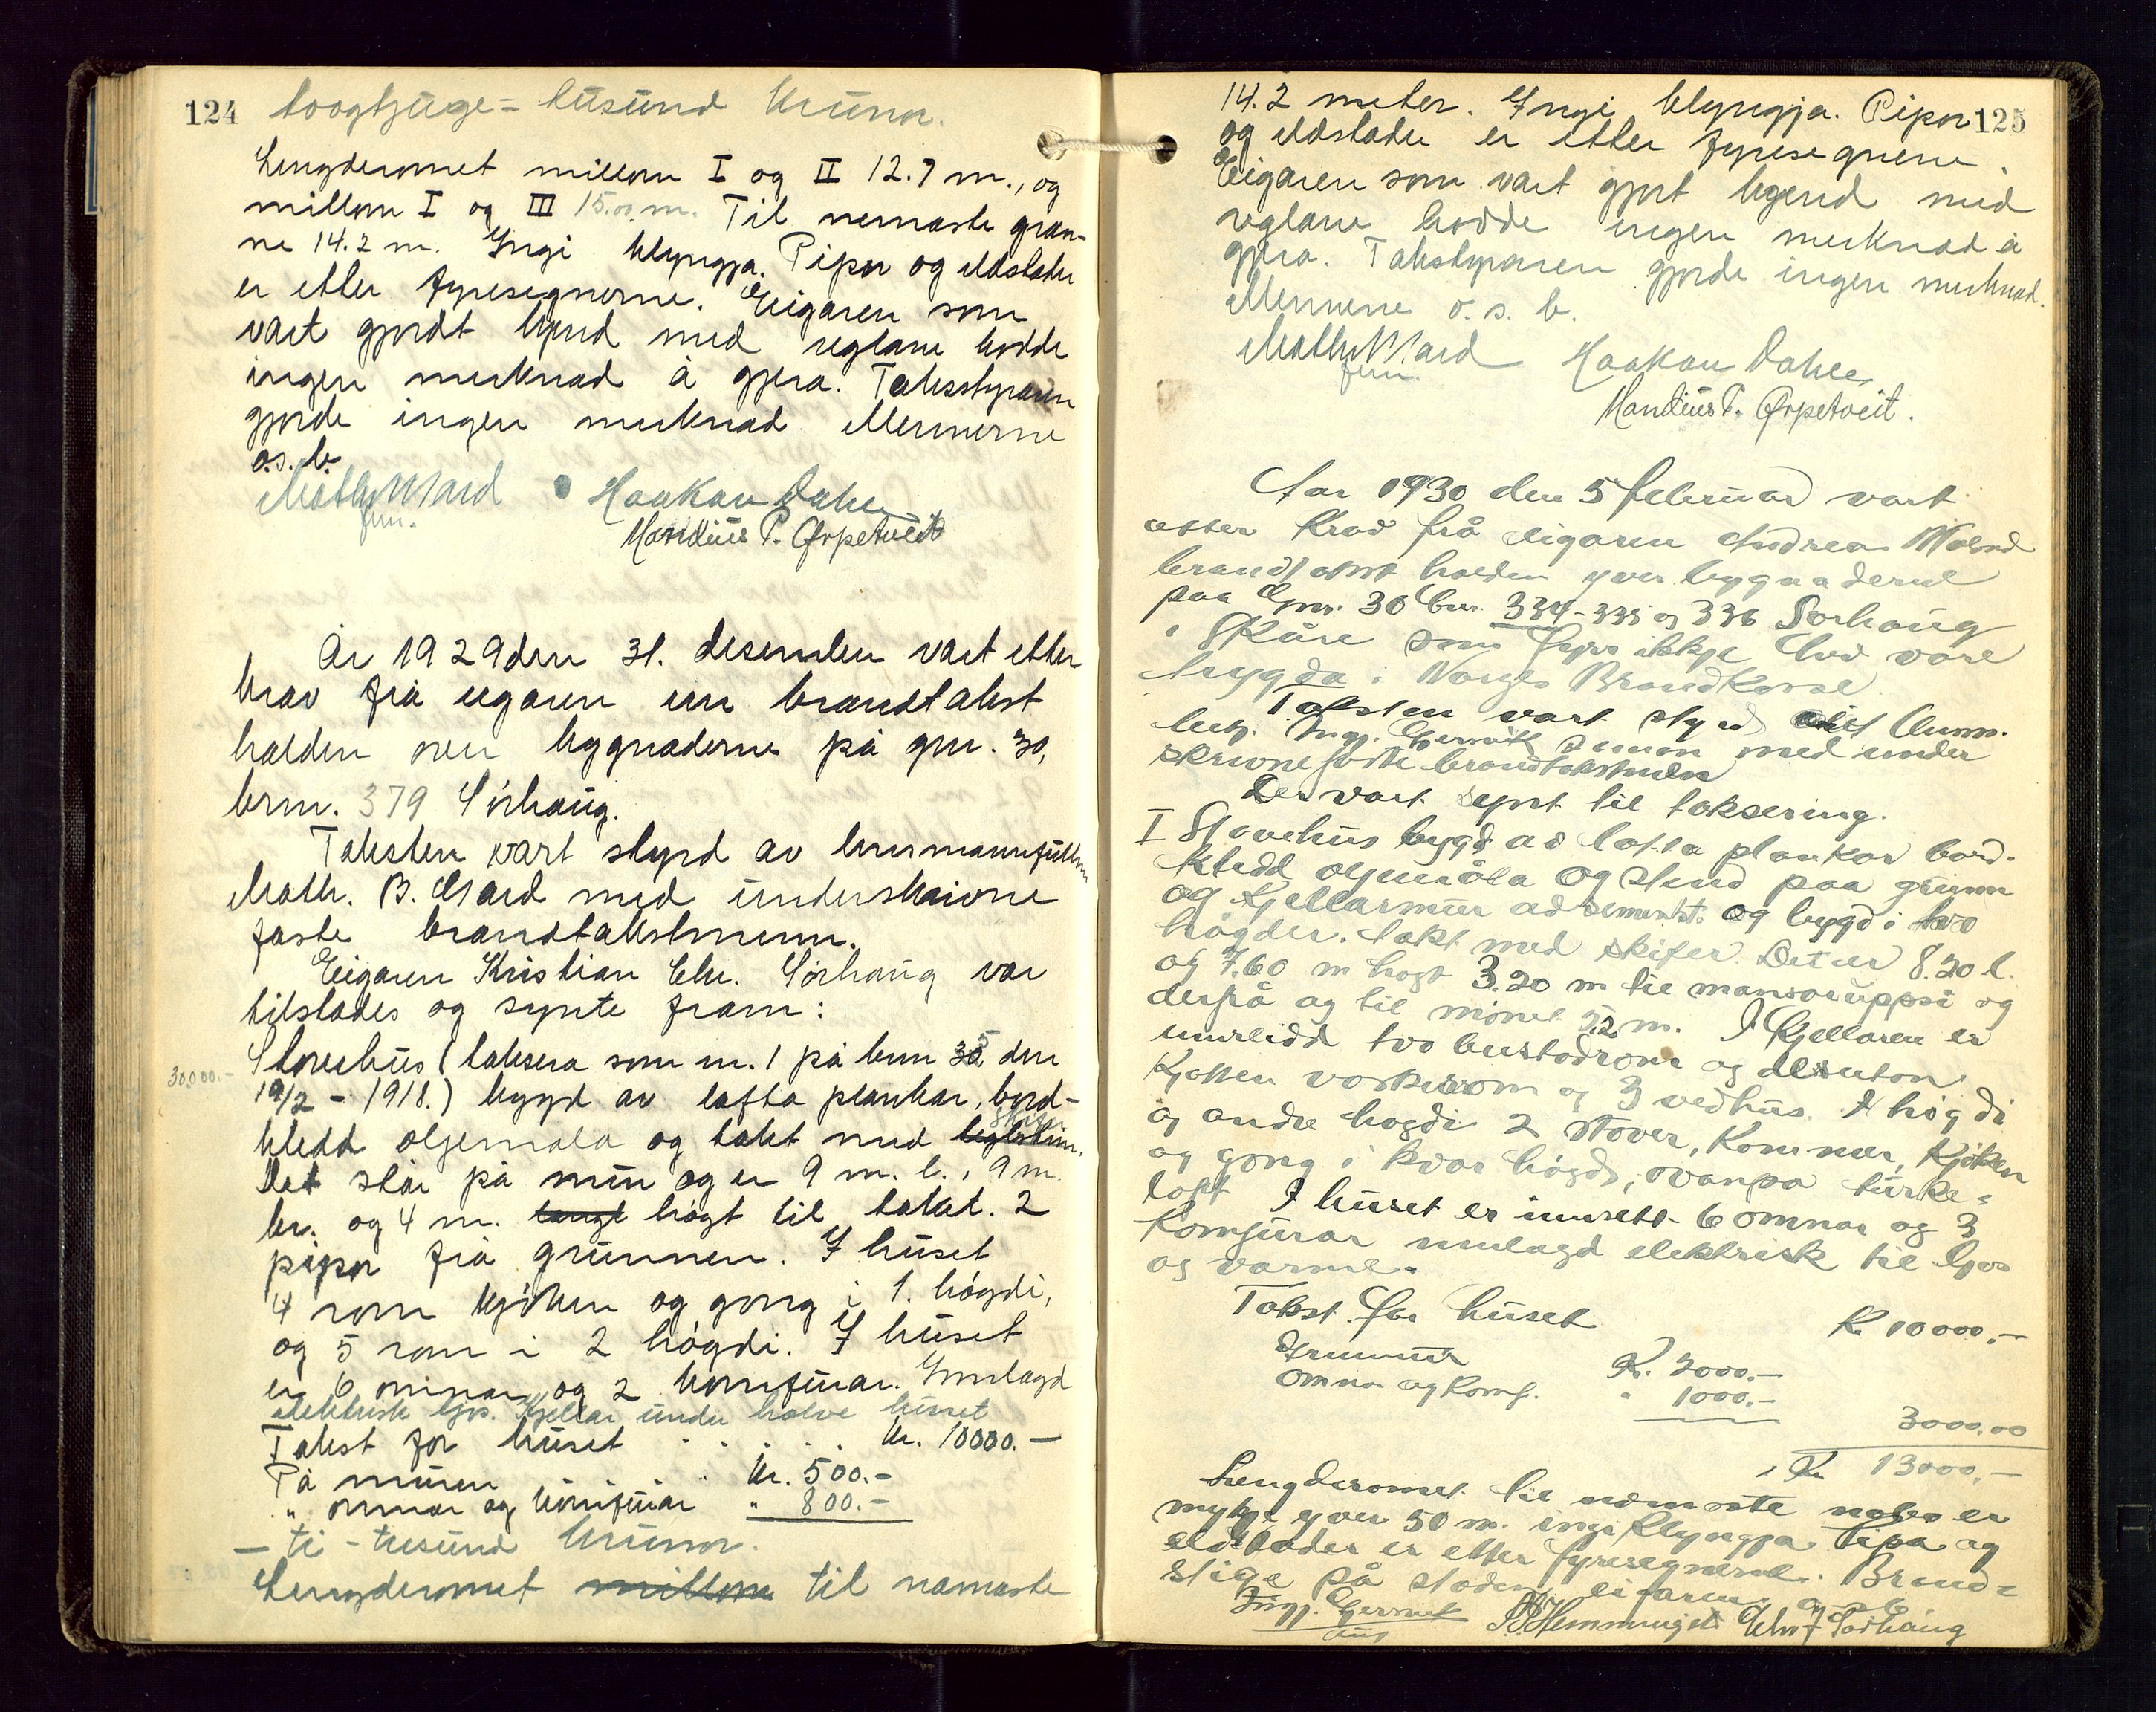 124 toogtjuge-tusund kruna.
Lengderomet millom I og II 12.7 m., og
millom I og III 15.00 m. Til nemaste gran-
ne 14.2 m. Ingi klyngja. Pipor og eldstader
er etter fyresegnerne. Eigaren som
vart gjordt kjend med reglane hadde
ingen merknad å gjera. Takststyraren
gjorde ingen merknad Mennerne
o.s.b.
Haakon Dahle
jun.
Mandius P. Qvpetveit
År 1929 den 31. desember vart etter
krav frå eigaren ein brandtakst
halden over bygnaderne på gnr. 30,
brn. 379 Sørhaug.
Taksten vart styrd av lensmannfullm
Math. B. Vard med underskrivne
faste brandtakstmenn.
Eigaren Kristian Chr. Sørhaug var
tilstades og synte fram:
30000.- Stovehus (taksera som nr. 1 på brn 35 den
19/2 - 1918.) bygd av lafta plankar, bord-
kledd oljemala og takt med teglstein. skifer
Det står på mur og er 9 m. l., 9 m
br. og 4 m. langt høgt til taket. 2
pipor frå grunnen. I huset
4 rom kjøken og gong i 1. høgdi,
og 5 rom i 2 høgdi. I huset
er 6 omnar og 2 komfurar. Innlagd
elektrisk ljos. Kjellar under halve huset
Takst for huset . . . . . kr. 10000.-
På muren . . kr. 500.-
" omnar og komfurar " 800.-
- ti-tusund kruna.
Lengderomet millom til namaste
125
14.2 meter. Ingi klyngja. Pipor
og eldstader er etter fyresegnerne.
Eigaren som vart gjort kjend med
reglane hadde ingen merknad å
gjera. Takstyraren gjorde ingen merknad.
Mennene o. s. b.
Haakon Dahle,
jun.
Mandius P. Qvpetveit.
Aar 1930 den 5 februar vart
etter krav frå eigaren Andrea
brandtakst halden yver bygnaderne
paa Gnr. 30 bnr. 334-335 og 336 Sørhaug
i Skåre som fyrr ikkje hev vore
trygda i Norges Brandkasse.
Taksten vart styrd av
med under
skrivne faste brandtakstmenn
Der vart synt til taksering.
I Stovehus bygd av lafta plankar bord-
kledd oljemåla og stend paa grunn
og kjellarmur av sement. og bygd i tvo
høgder. takt med skifer. Det er 8.20 l.
og 7.60 m høgt 3.20 m til mansaruppsi og
derfrå og til mønet 5,2 m. I kjellaren er
innreidd tvo bustadrom og desutan
kjøken vaskerom og 3 vedhus. I høgdi
og andre høgdi 2 stover, kammer, kjøken
og gong i kvar høgd, ovanpa turke-
loft I huset er innsett 6 omnar og 3
komfurar innlagd elektrisk til ljos
og varme.
Takst for huset K. 10000.-
Grunnmur Kr. 2000.-
Omna og komf. " 1000.-
3000.00
Kr 13000,-
Lengderomet til næmaste nabo er
mykje yver 50 m. ingi klyngja. Pipa og
eldstader er etter fyresegnerne. Brand-
stige på staden, eigaren
Sørhaug